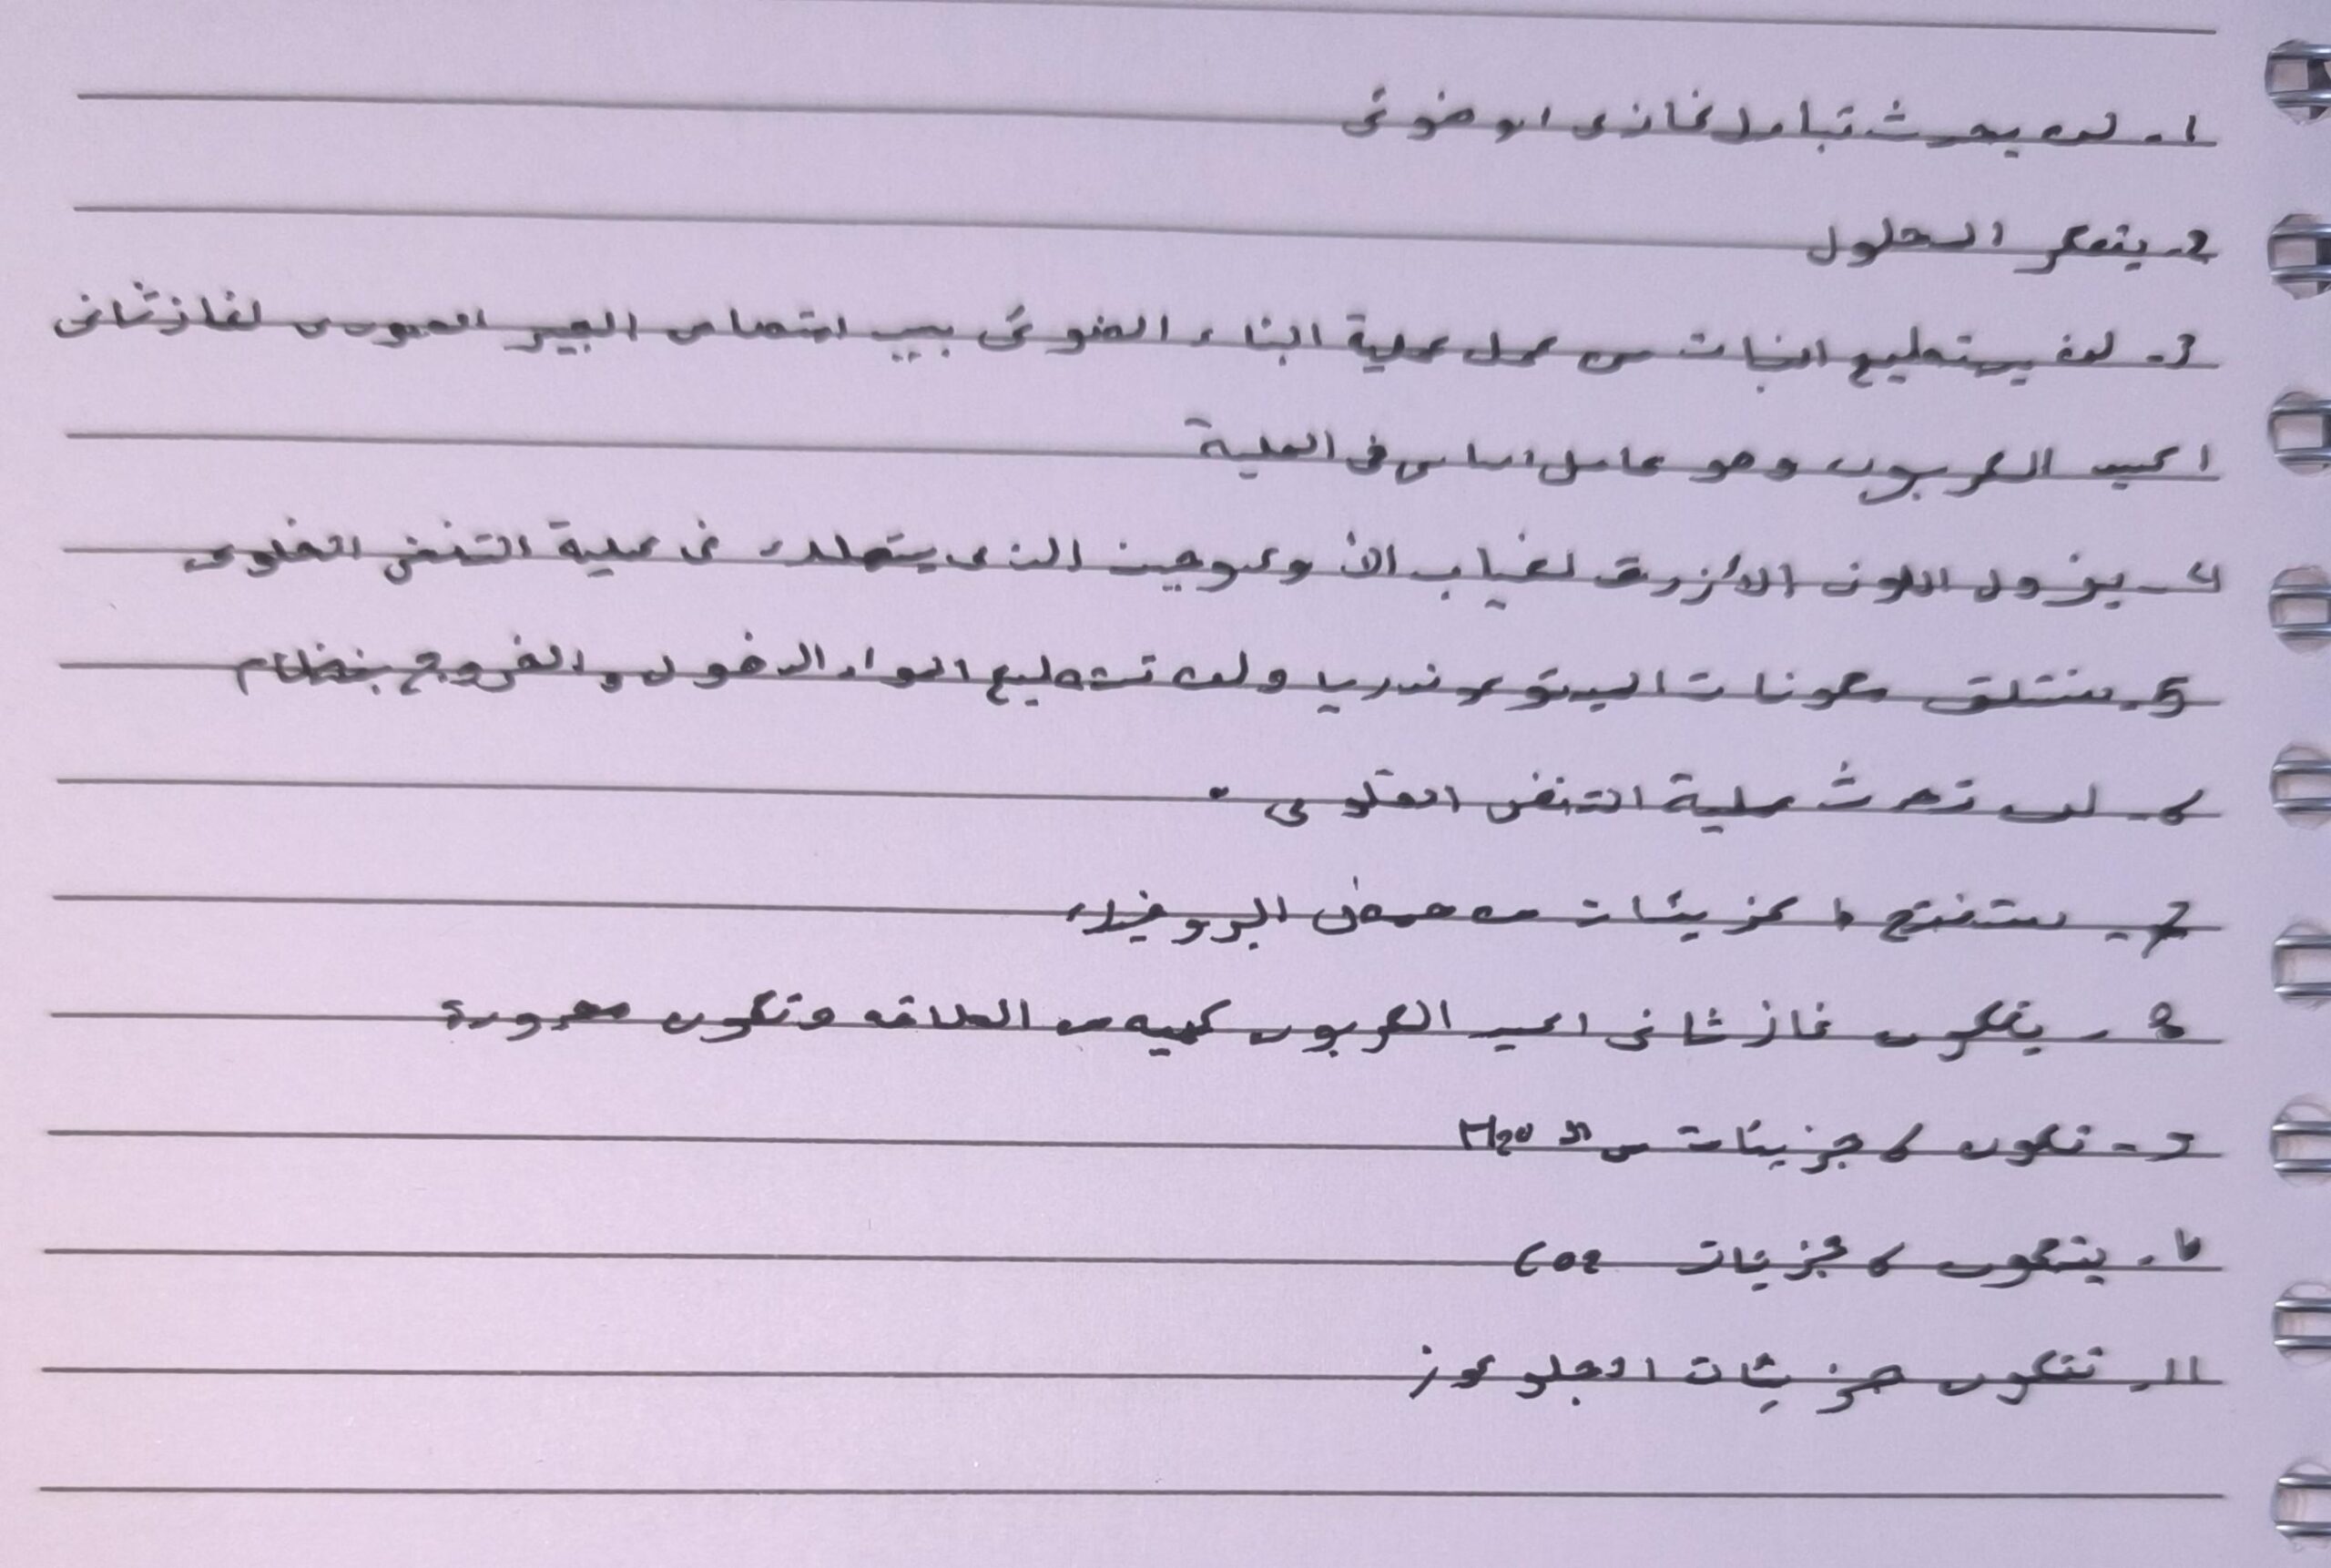 1. لن يحدث تبادل غازى او ضوئى
2. يتعكر المحلول
3. لن يستطيع النبات من عمل عملية البناء الضوئى بسبب امتصاص الجير الصودى لغاز ثانى
اكسيد الكربون وهو عامل اساسى فى العملية
4. يزول اللون الأزرق لغياب الأوكسوجين الذى يتطلب فى عملية التنفس الخلوى
5. ستتلف مكونات الميتوكوندريا ولن تستطيع المواد الدخول والخروج بنظام
6. لن تحدث عملية التنفس الخلوى.
7. ستنتج جزيئات من حمض البيروفيك
8. يتكون غاز ثانى اكسيد الكربون كميه من الطاقه وتكون محدودة
9. تكون 6 جزيئات من ال H2O
10. يتكون 6 جزيئات CO2
11. تتكون جزيئات الجلوكوز